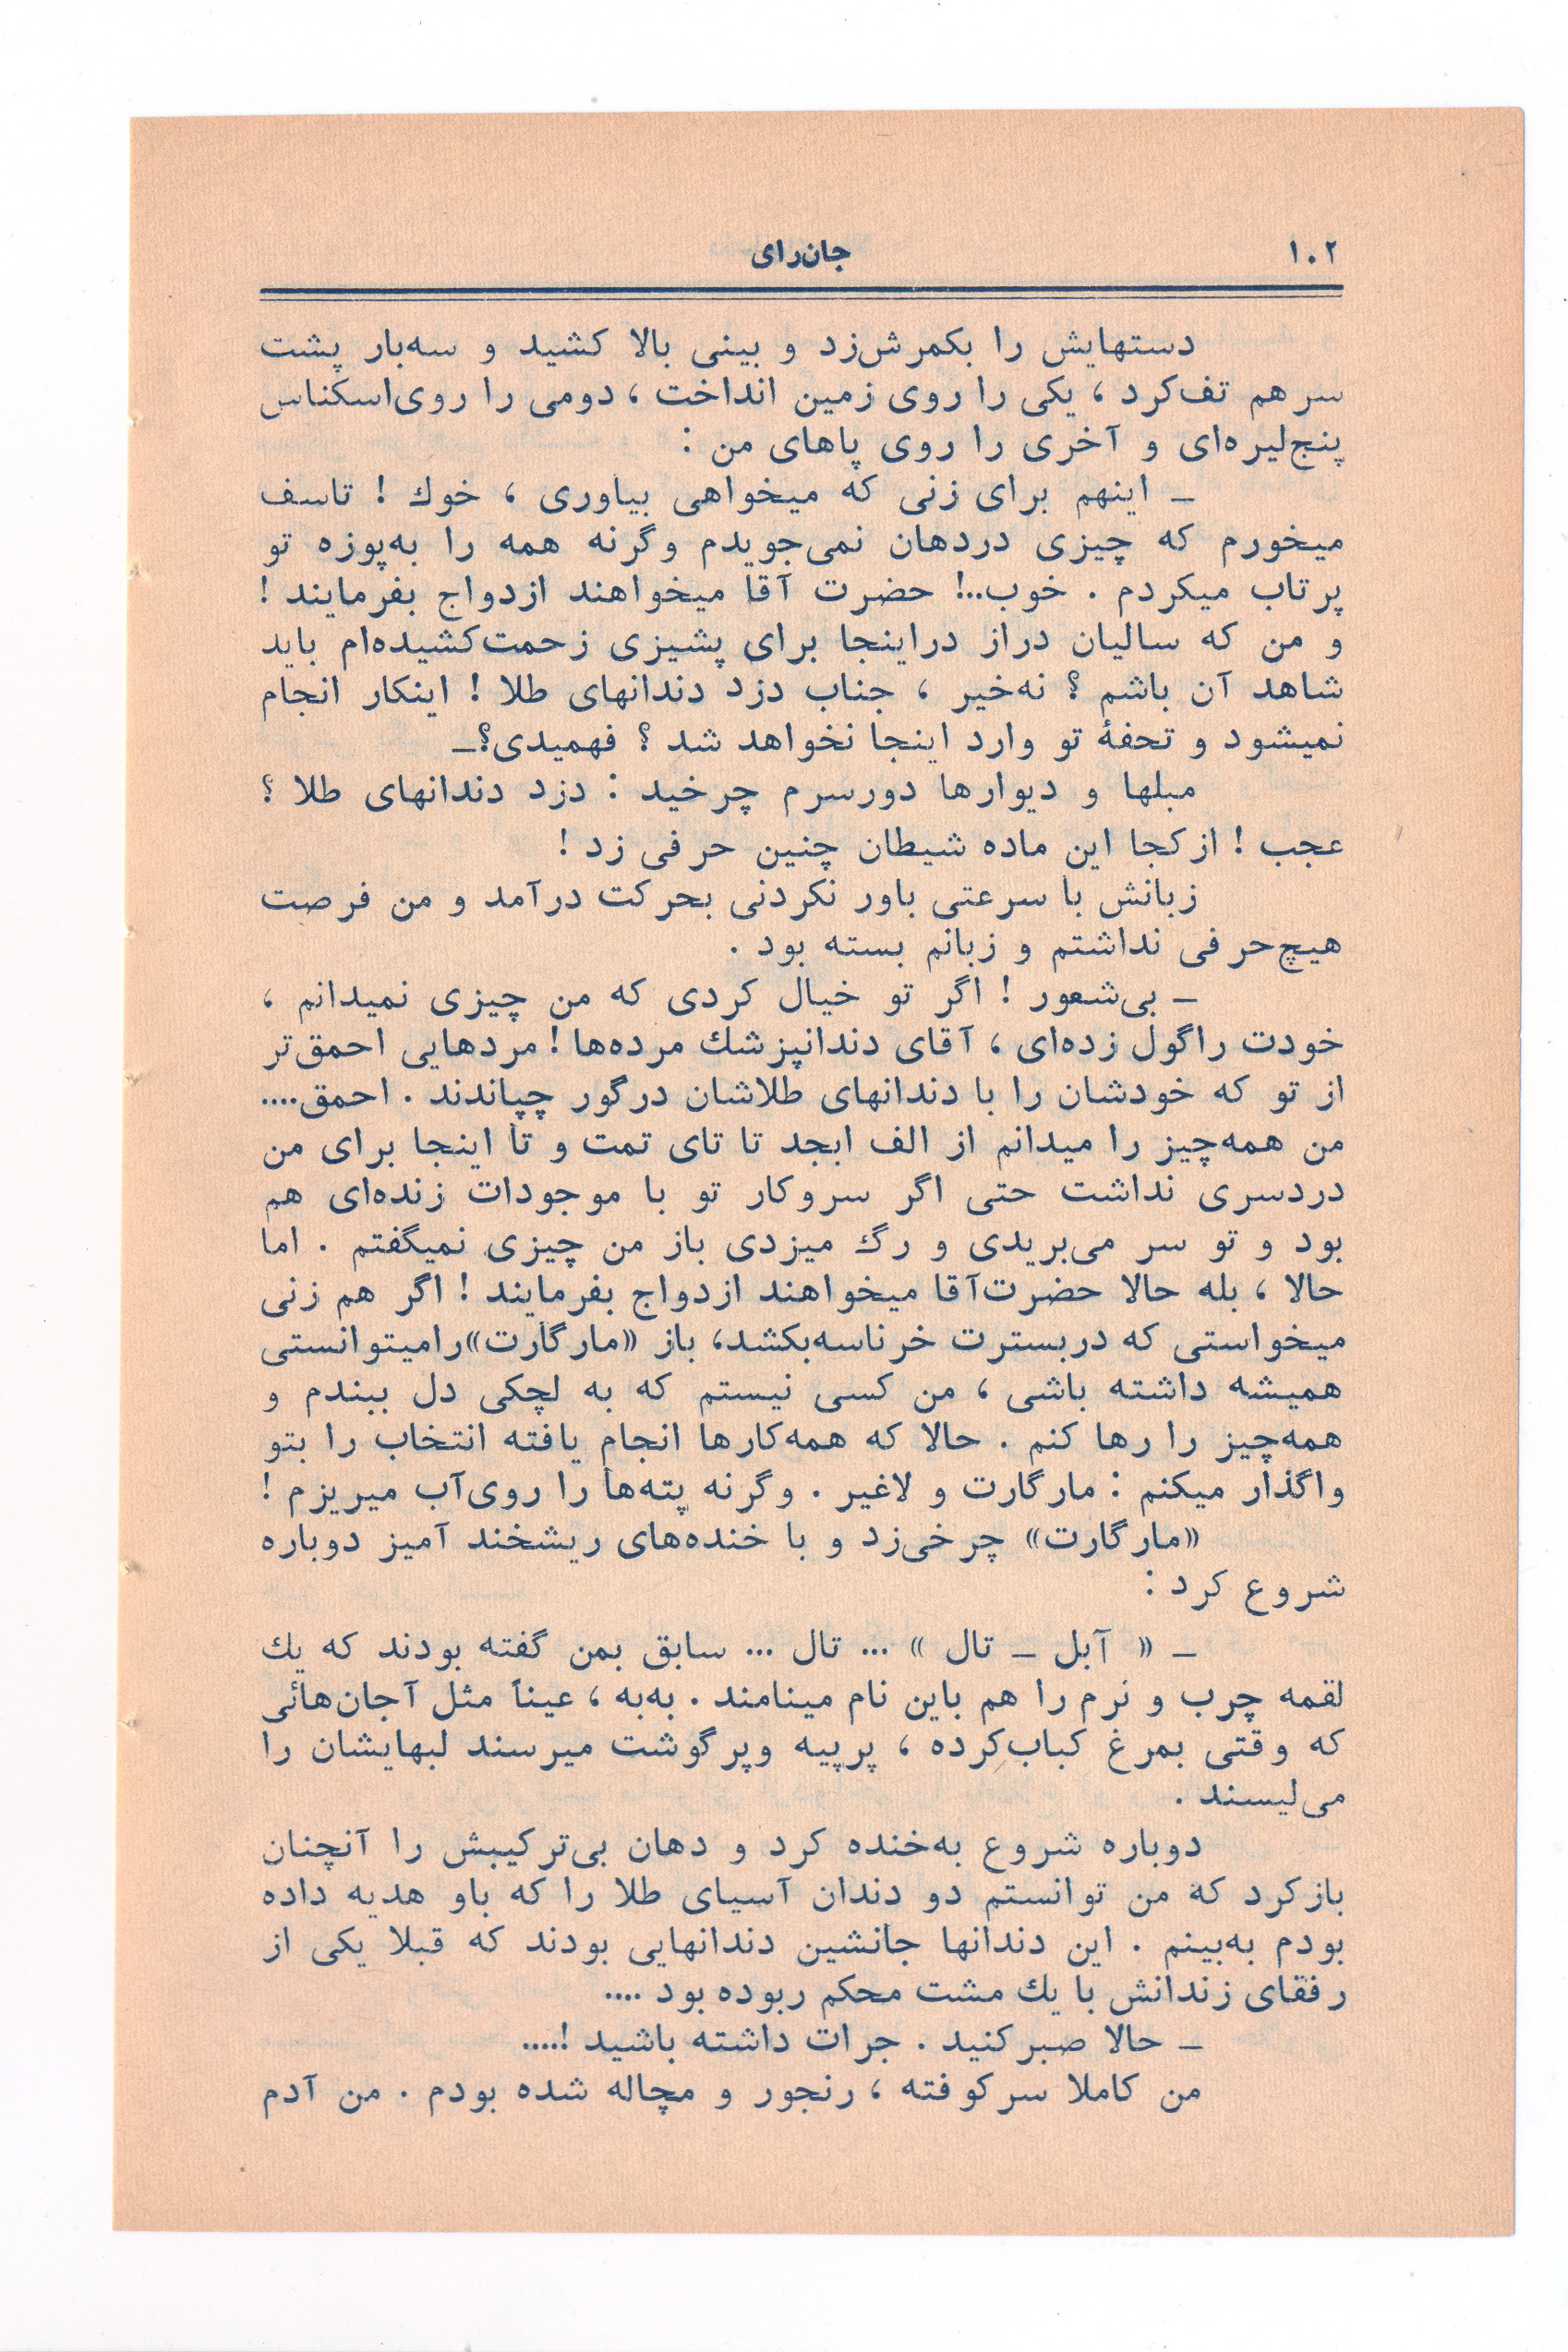 ۱۰۲
جان‌رای
دستهایش را بکمرش‌زد و بینی بالا کشید و سه‌بار پشت
سر هم تف‌کرد ، یکی را روی زمین انداخت ، دومی را روی‌اسکناس
پنج‌لیره‌ای و آخری را روی پاهای من :
ـ اینهم برای زنی که میخواهی بیاوری ، خوك ! تاسف
میخورم که چیزی دردهان نمی‌جویدم وگرنه همه را به‌پوزه تو
پرتاب میکردم . خوب..! حضرت آقا میخواهند ازدواج بفرمایند !
و من که سالیان دراز دراینجا برای پشیزی زحمت‌کشیده‌ام باید
شاهد آن باشم ؟ نه‌خیر ، جناب دزد دندانهای طلا ! اینکار انجام
نمیشود و تحفهٔ تو وارد اینجا نخواهد شد ؟ فهمیدی؟ـ
مبلها و دیوارها دورسرم چرخید : دزد دندانهای طلا ؟
عجب ! ازکجا این ماده شیطان چنین حرفی زد !
زبانش با سرعتی باور نکردنی بحرکت درآمد و من فرصت
هیچ‌حرفی نداشتم و زبانم بسته بود .
ـ بی‌شعور ! اگر تو خیال کردی که من چیزی نمیدانم ،
خودت راگول زده‌ای ، آقای دندانپزشك مرده‌ها ! مردهایی احمق‌تر
از تو که خودشان را با دندانهای طلاشان درگور چپاندند . احمق....
من همه‌چیز را میدانم از الف ابجد تا تای تمت و تا اینجا برای من
دردسری نداشت حتی اگر سروکار تو با موجودات زنده‌ای هم
بود و تو سر می‌بریدی و رگ میزدی باز من چیزی نمیگفتم . اما
حالا ، بله حالا حضرت‌آقا میخواهند ازدواج بفرمایند ! اگر هم زنی
میخواستی که دربسترت خرناسه‌بکشد، باز «مارگارت»رامیتوانستی
همیشه داشته باشی ، من کسی نیستم که به لچکی دل ببندم و
همه‌چیز را رها کنم . حالا که همه‌کارها انجام یافته انتخاب را بتو
واگذار میکنم : مارگارت و لاغیر . وگرنه پته‌ها را روی‌آب میریزم !
«مارگارت» چرخی‌زد و با خنده‌های ریشخند آمیز دوباره
شروع کرد :
ـ « آبل ـ تال » ... تال ... سابق بمن گفته بودند که یك
لقمه چرب و نرم را هم باین نام مینامند . به‌به ، عیناً مثل آجان‌هائی
که وقتی بمرغ کباب‌کرده ، پرپیه وپرگوشت میرسند لبهایشان را
می‌لیسند .
دوباره شروع به‌خنده کرد و دهان بی‌ترکیبش را آنچنان
بازکرد که من توانستم دو دندان آسیای طلا را که باو هدیه داده
بودم به‌بینم . این دندانها جانشین دندانهایی بودند که قبلا یکی از
رفقای زندانش با یك مشت محکم ربوده بود ....
ـ حالا صبرکنید . جرات داشته باشید !....
من کاملا سرکوفته ، رنجور و مچاله شده بودم . من آدم